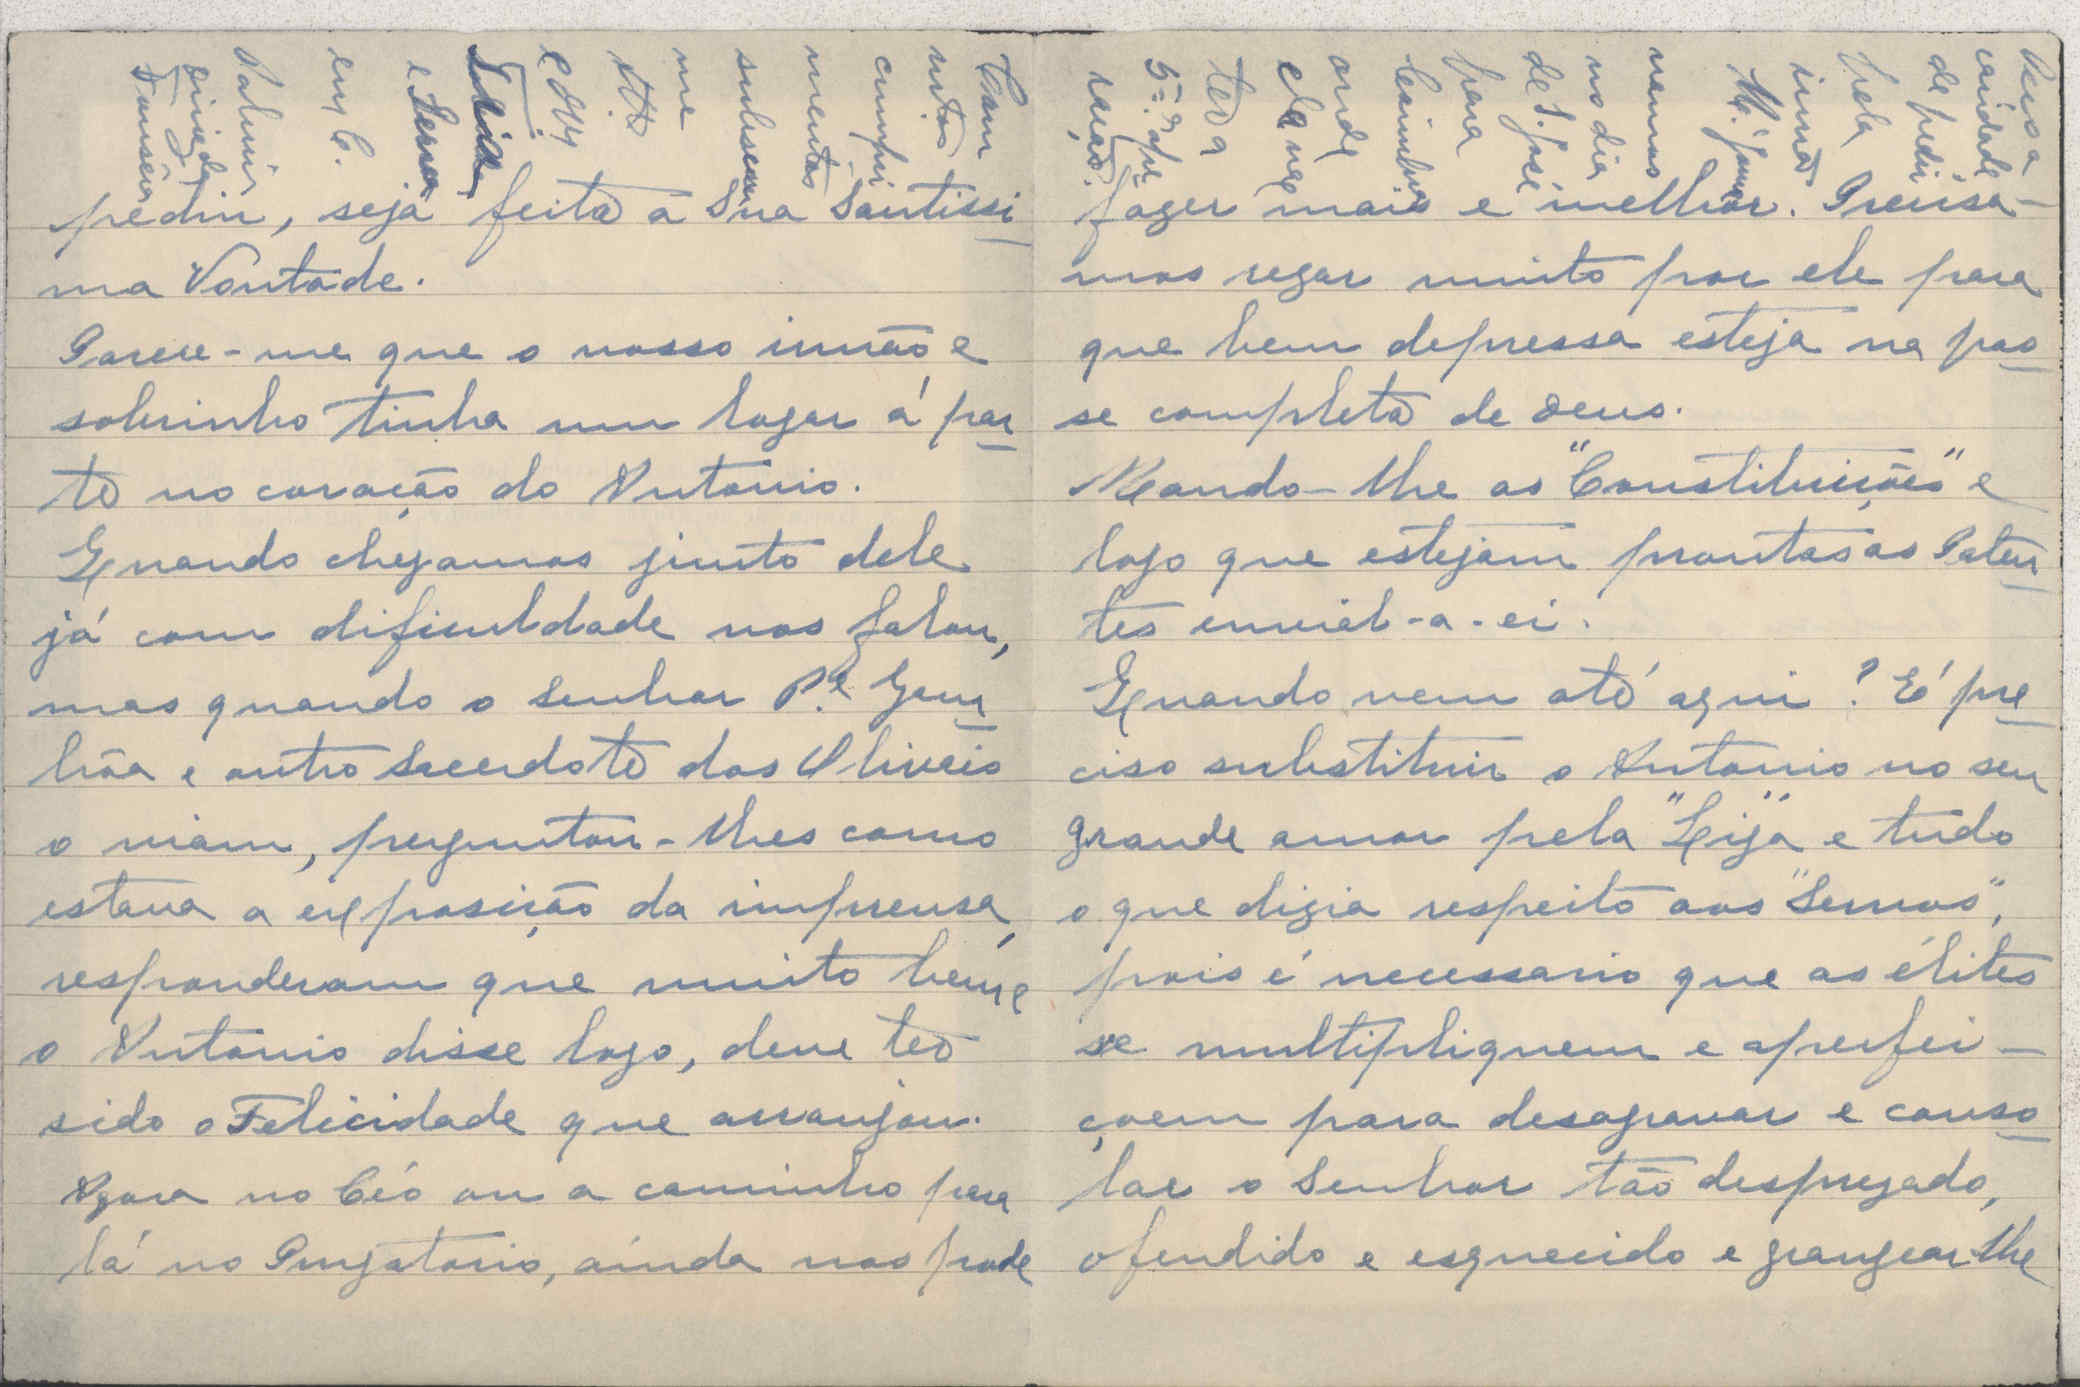 pediu, seja feita a Sua Santissi
ma Vontade.
Parece-me que o nosso irmão e
sobrinho tinha um logar á par
te no coração do Antonio.
Quando chegamos junto dele
já com dificuldade nos falou,
mas quando o Senhor P.e
e outro Sacerdote dos Olivais
o viam, perguntou-lhes como
estava a exposição da imprensa,
responderam que muito bem e
o Antonio disse logo, deve ter
sido o Felicidade que arranjou.
Agora no Céo ou a caminho para
lá no Purgatorio, ainda nos pode
fazer mais e melhor. Precisa-
mos rezar muito por ele para
que bem depressa esteja na pos
se completa de Deus.
Mando-lhe as "Constituições" e
logo que estejam prontas as Paten
tes enviál-a-ei.
Quando vem até aqui? É pre
ciso substituir o Antonio no seu
grande amor pela "Liga" e tudo
o que dizia respeito aos "Servos",
pois é necessario que as élites
se multipliquem e aperfei-
çoem para desagravar e conso
lar o Senhor tão desprezado,
ofendido e esquecido e grangear-lhe
caridade
de pedir
pela
irmã
no dia
de S. José
para
Coimbra
onde
ela vae
ter a
Com
mtos
cumpri
mentos
subscrevo
me
em C.